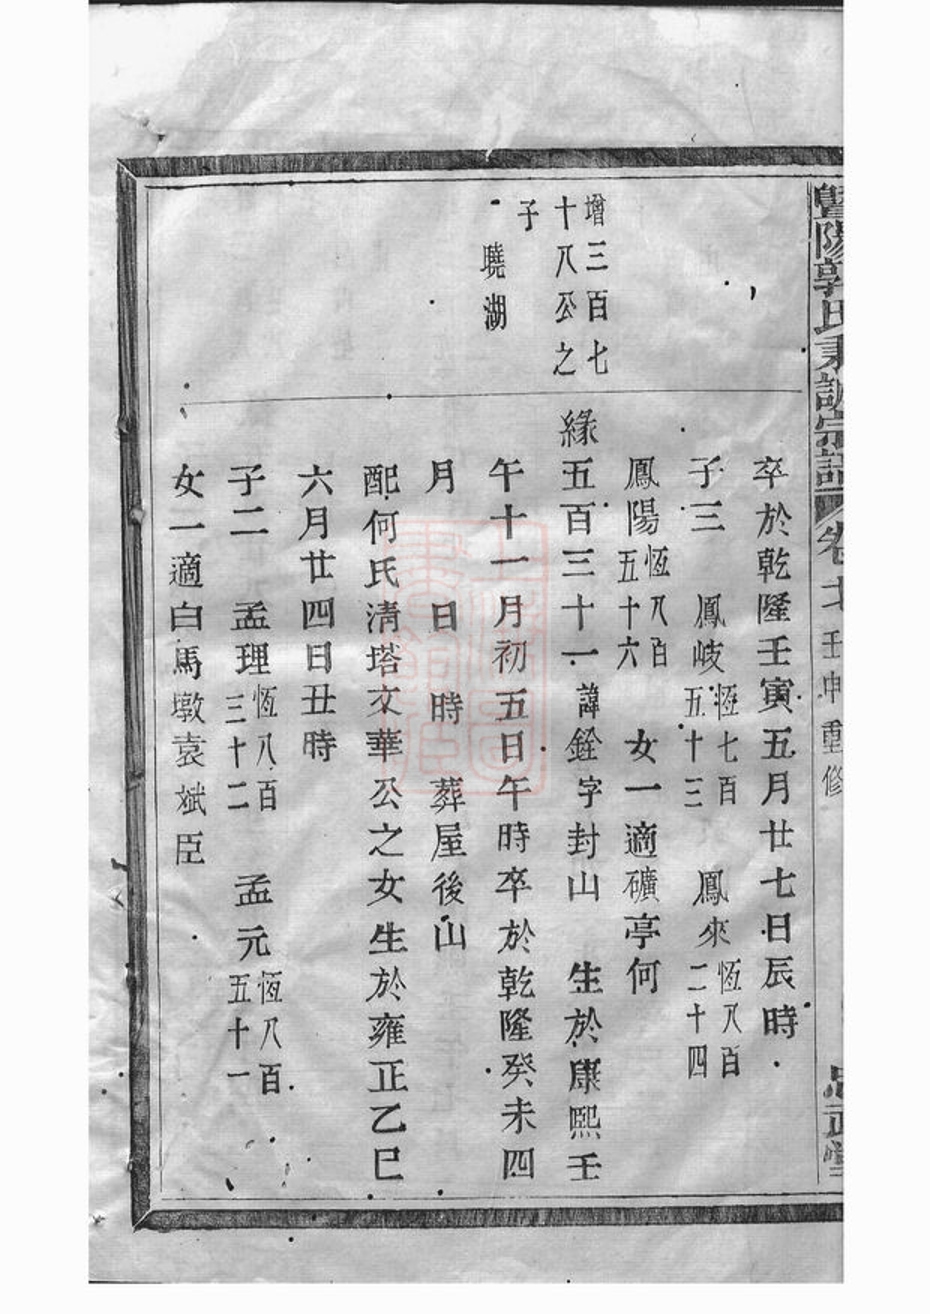 暨陽郭氏東譙宗譜 卷七 壬申重修 忠武堂
卒於乾隆壬寅五月廿七日辰時
子三 鳳岐恆七百五十三 鳳來恆八百二十四
鳳陽恆八百五十六 女一適礦亭何
增三百七
十八公之
子
曉湖
緣五百三十一諱銓字封山 生於康熙壬
午十一月初五日午時卒於乾隆癸未四
月 日 時 葬屋後山
配何氏清塔文華公之女生於雍正乙巳
六月廿四日丑時
子二 孟理恆八百三十二 孟元恆八百五十一
女一適白馬墩袁斌臣